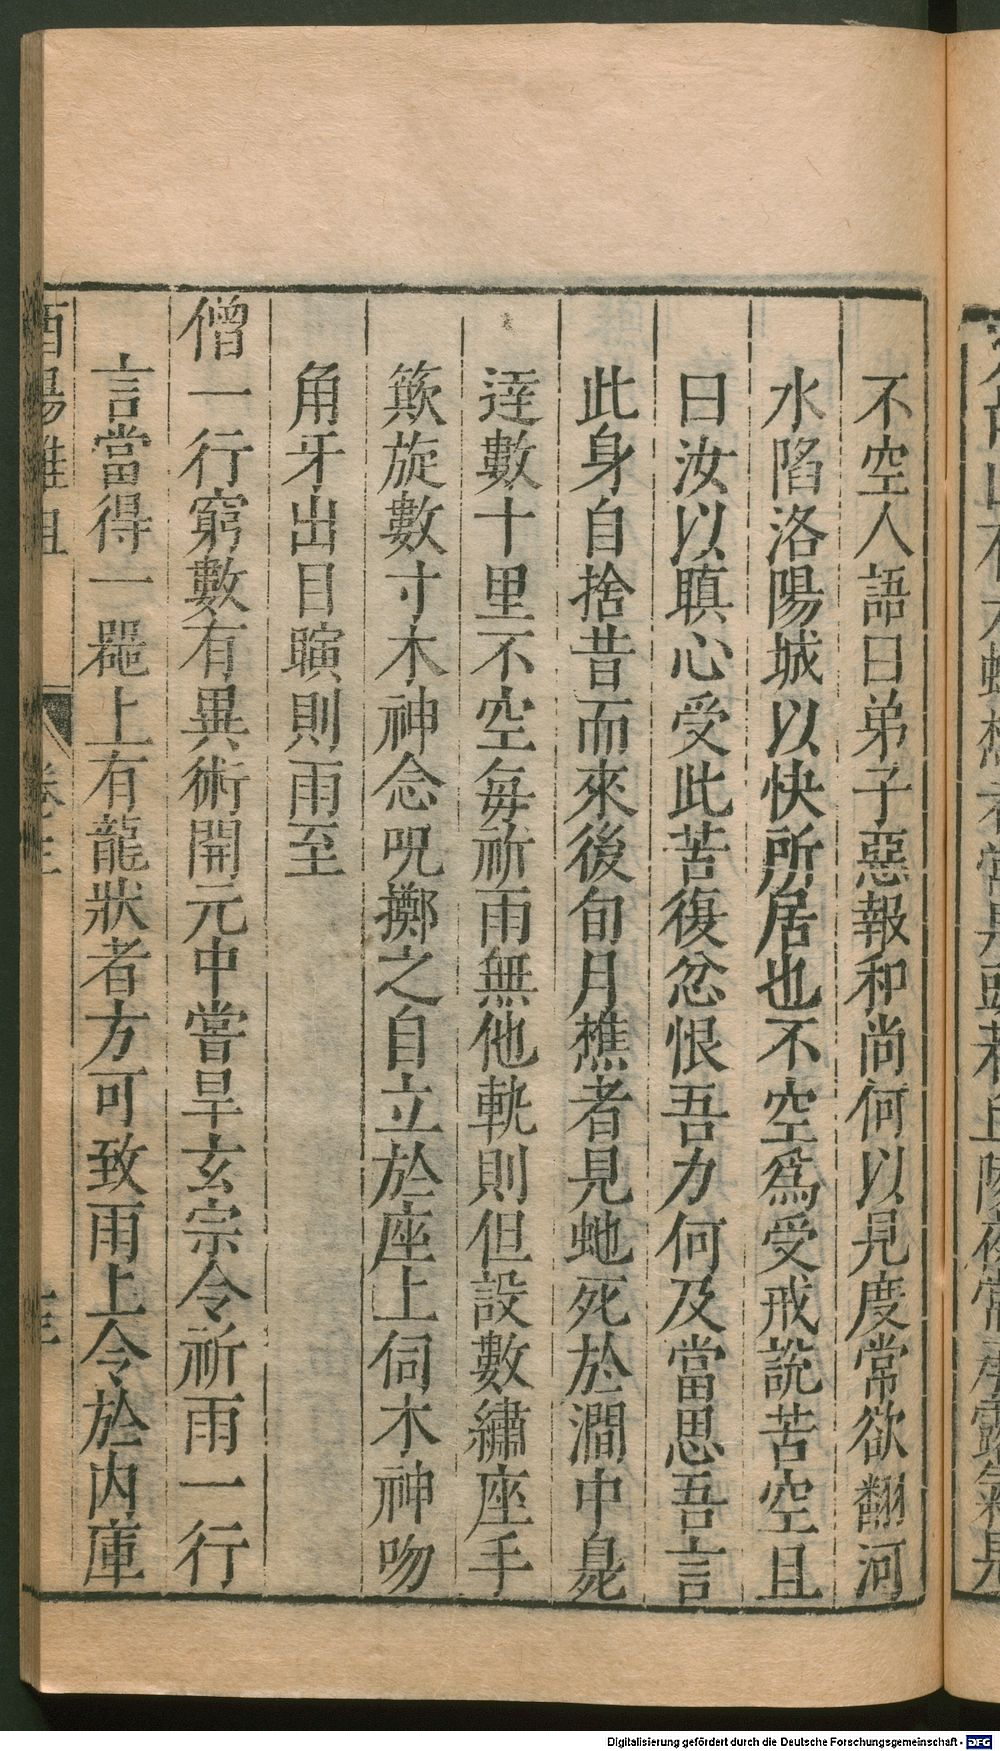 不空人語曰弟子惡報和尚何以見度常欲翻河
水陷洛陽城以快所居也不空爲受戒說苦空且
曰汝以瞋心受此苦復忿恨吾力何及當思吾言
此身自捨昔而來後旬月樵者見虵死於澗中臰
達數十里不空每祈雨無他軌則但設數繡座手
簸旋數寸木神念呪擲之自立於座上伺木神吻
角牙出目瞚則雨至
僧一行窮數有異術開元中嘗旱玄宗令祈雨一行
言當得一噐上有龍狀者方可致雨上令於內庫
酉陽雜俎 卷之三
Digitalisierung gefördert durch die Deutsche Forschungsgemeinschaft - DFG